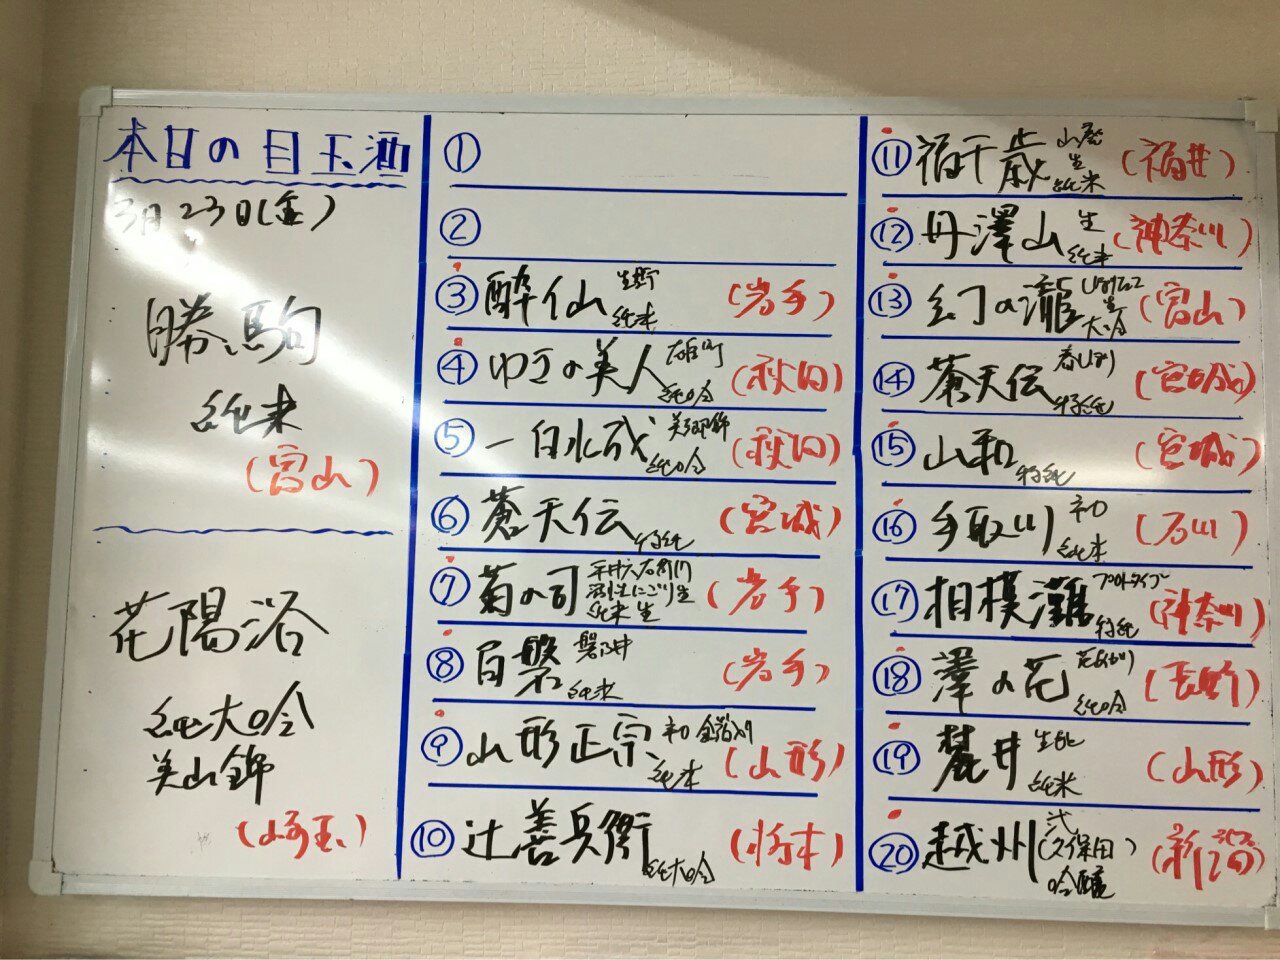 本日の目玉酒
3月23日(金)
勝駒
純米
(富山)
花陽浴
純大吟
美山錦
(埼玉)
①
②
③ 酔仙 純米 (岩手)
④ ゆきの美人 雄町 純吟 (秋田)
⑤ 一白水成 美郷錦 純吟 (秋田)
⑥ 蒼天伝 特純 (宮城)
⑦ 菊の司 平井六右衛門 活性にごり生 純米生 (岩手)
⑧ 百磐 磐乃井 純米 (岩手)
⑨ 山形正宗 純米 (山形)
⑩ 辻善兵衛 純大吟 (栃木)
⑪ 福千歳 山廃 生 純米 (福井)
⑫ 丹澤山 生 純米 (神奈川)
⑬ 幻の瀧 しぼりたて 生 大吟 (富山)
⑭ 蒼天伝 春しぼり 特純 (宮城)
⑮ 山和 特純 (宮城)
⑯ 手取川 純米 (石川)
⑰ 相模灘 プロトタイプ 特純 (神奈川)
⑱ 澤の花 花あかり 純吟 (長野)
⑲ 麓井 生酛 純米 (山形)
⑳ 越州 弐 (久保田) 吟醸 (新潟)